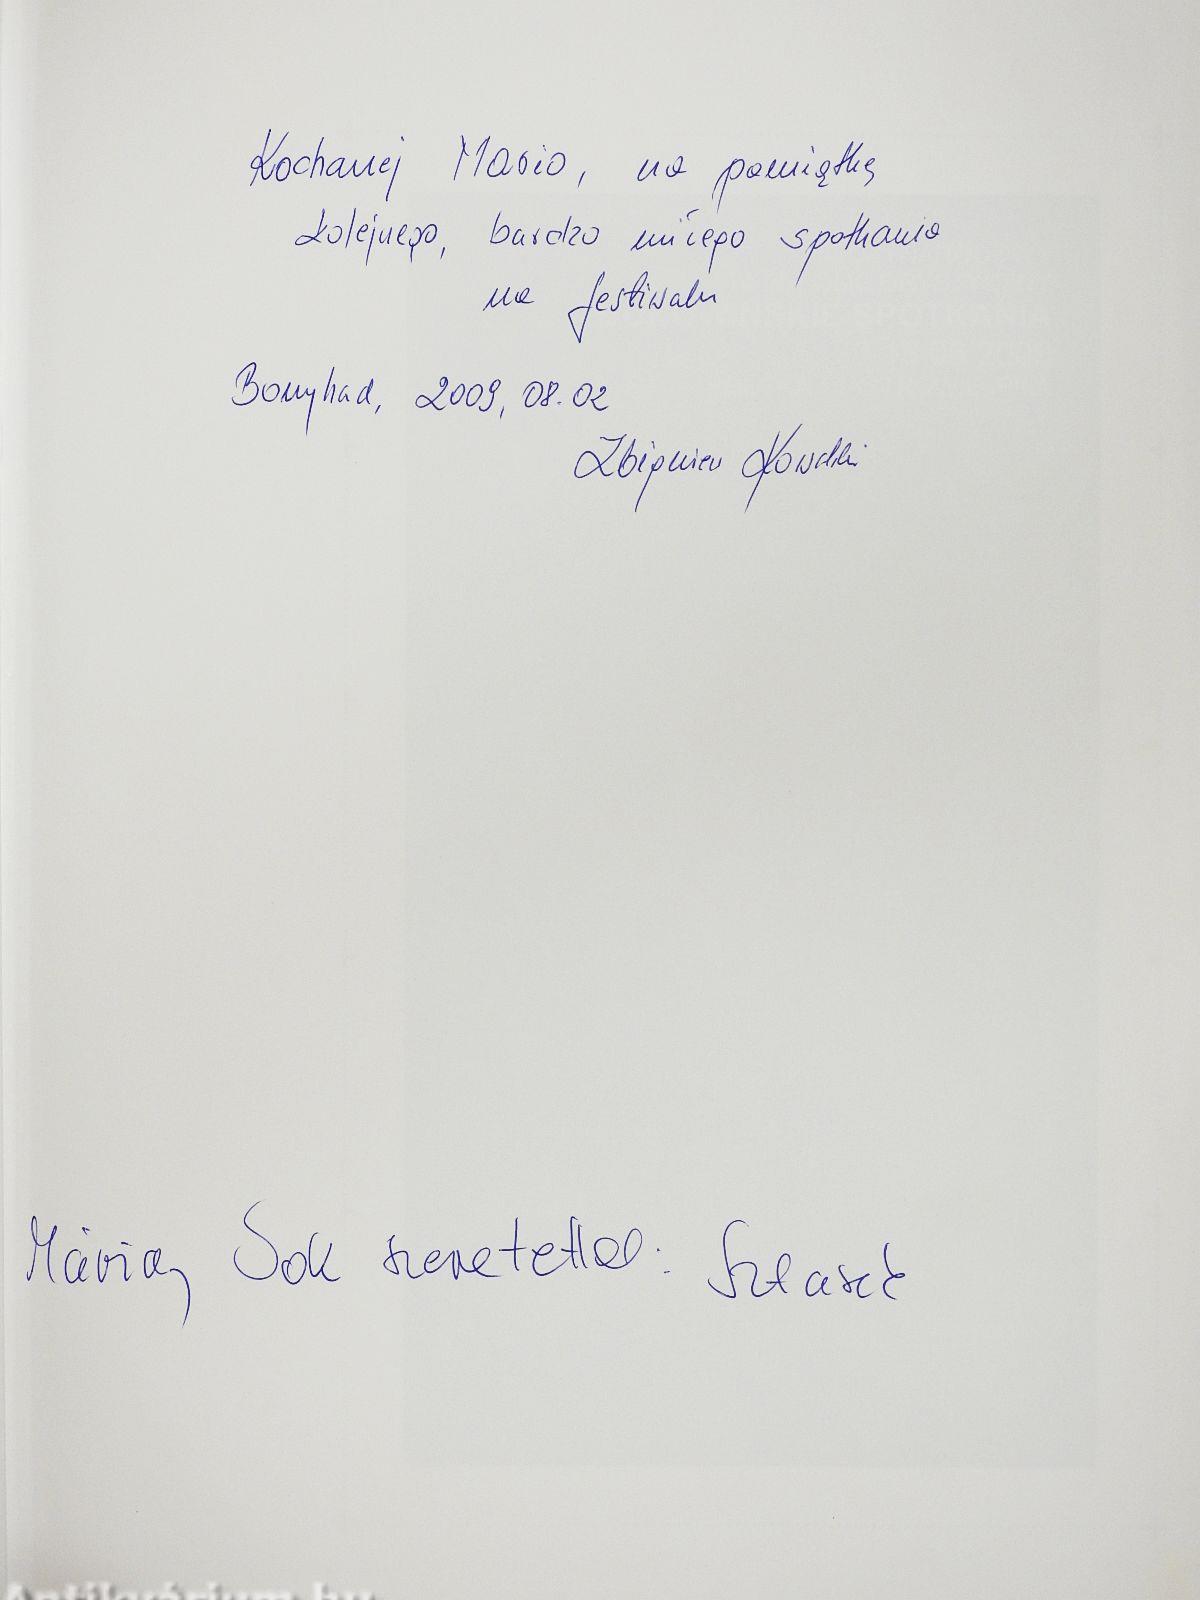 Kochanej Mario, na pamiątkę
kolejnego, bardzo miłego spotkania
na festiwalu
Bonyhad, 2009, 08.02
Zbigniew Kowalski
Mária, Sok szeretettel:
Antikvárium.hu